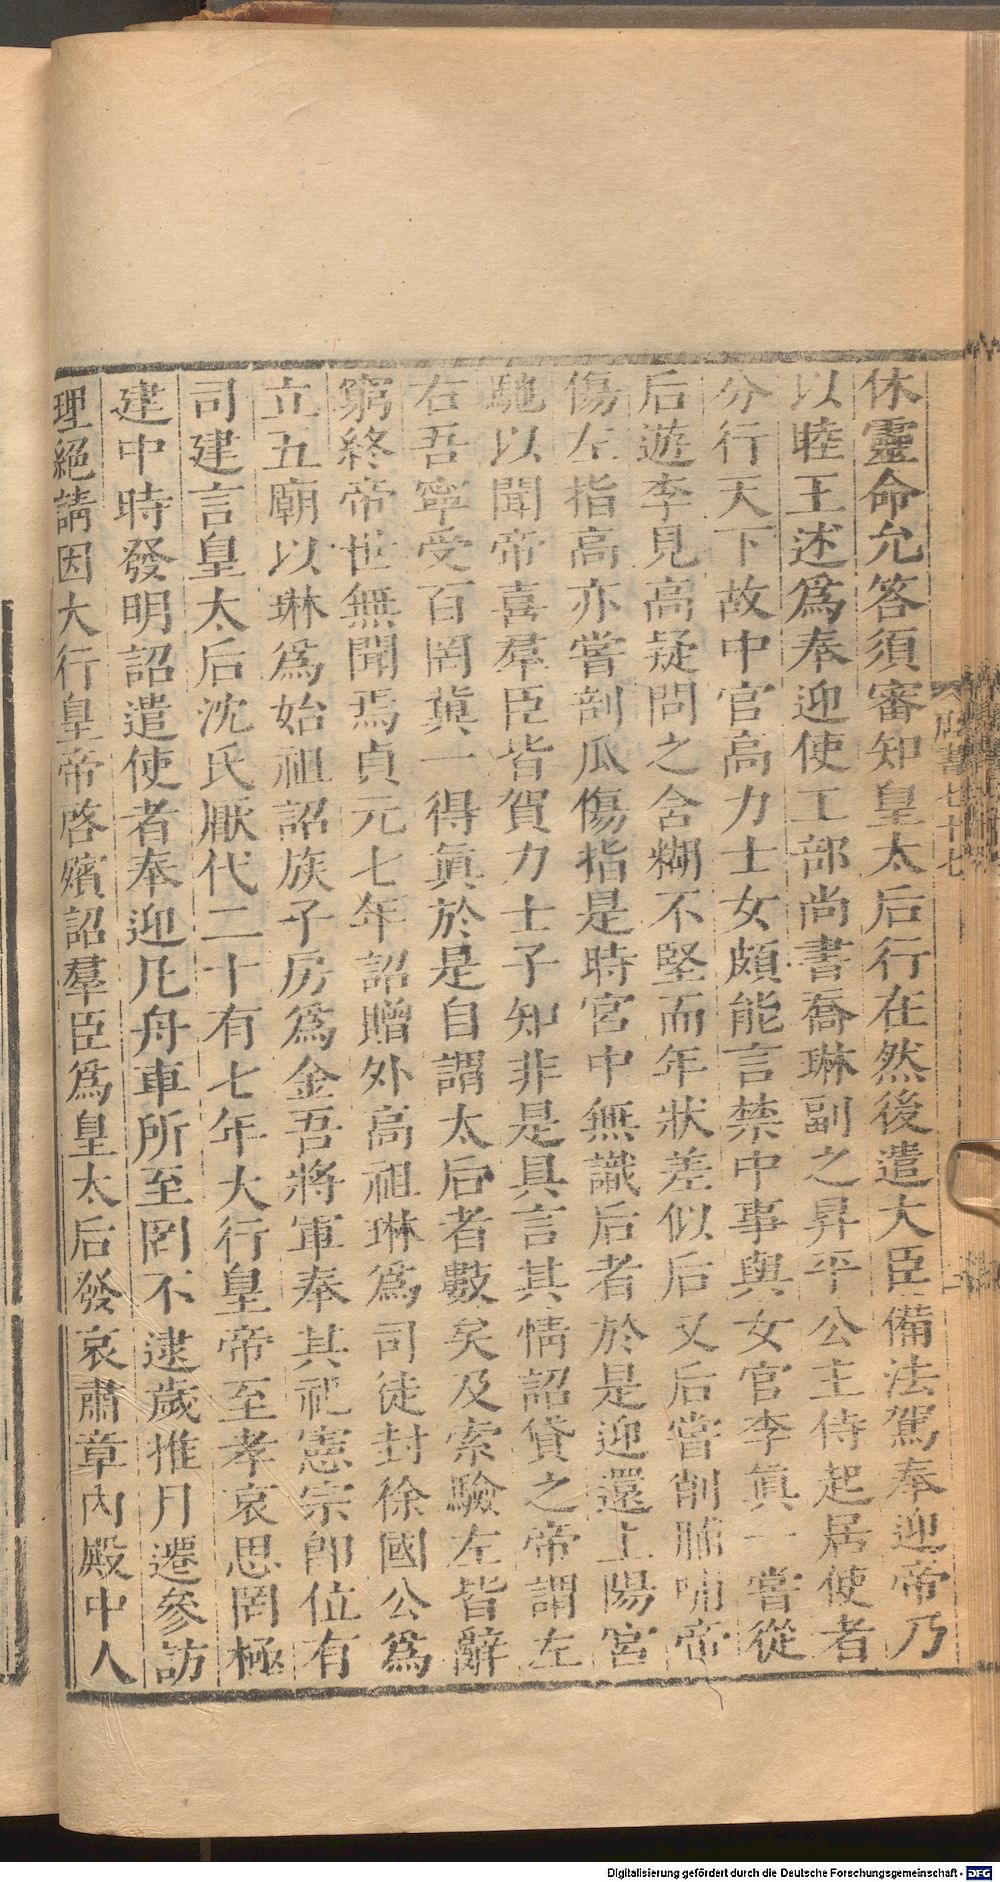 休靈命允答須審知皇太后行在然後遣大臣備法駕奉迎帝乃
以睦王述爲奉迎使工部尚書喬琳副之昇平公主侍起居使者
分行天下故中官高力士女頗能言禁中事與女官李眞一嘗從
后遊李見高疑問之含糊不堅而年狀差似后又后嘗削脯哺帝
傷左指高亦嘗剖瓜傷指是時宮中無識后者於是迎還上陽宮
馳以聞帝喜羣臣皆賀力士子知非是具言其情詔貸之帝謂左
右吾寧受百罔冀一得眞於是自謂太后者數矣及索驗左皆辭
窮終帝世無聞焉貞元七年詔贈外高祖琳爲司徒封徐國公爲
立五廟以琳爲始祖詔族子房爲金吾將軍奉其祀憲宗卽位有
司建言皇太后沈氏厭代二十有七年大行皇帝至孝哀思罔極
建中時發明詔遣使者奉迎凡舟車所至罔不逮歲推月遷參訪
理絕請因大行皇帝啓殯詔羣臣爲皇太后發哀肅章內殿中人
唐書七十七
Digitalisierung gefördert durch die Deutsche Forschungsgemeinschaft - DFG